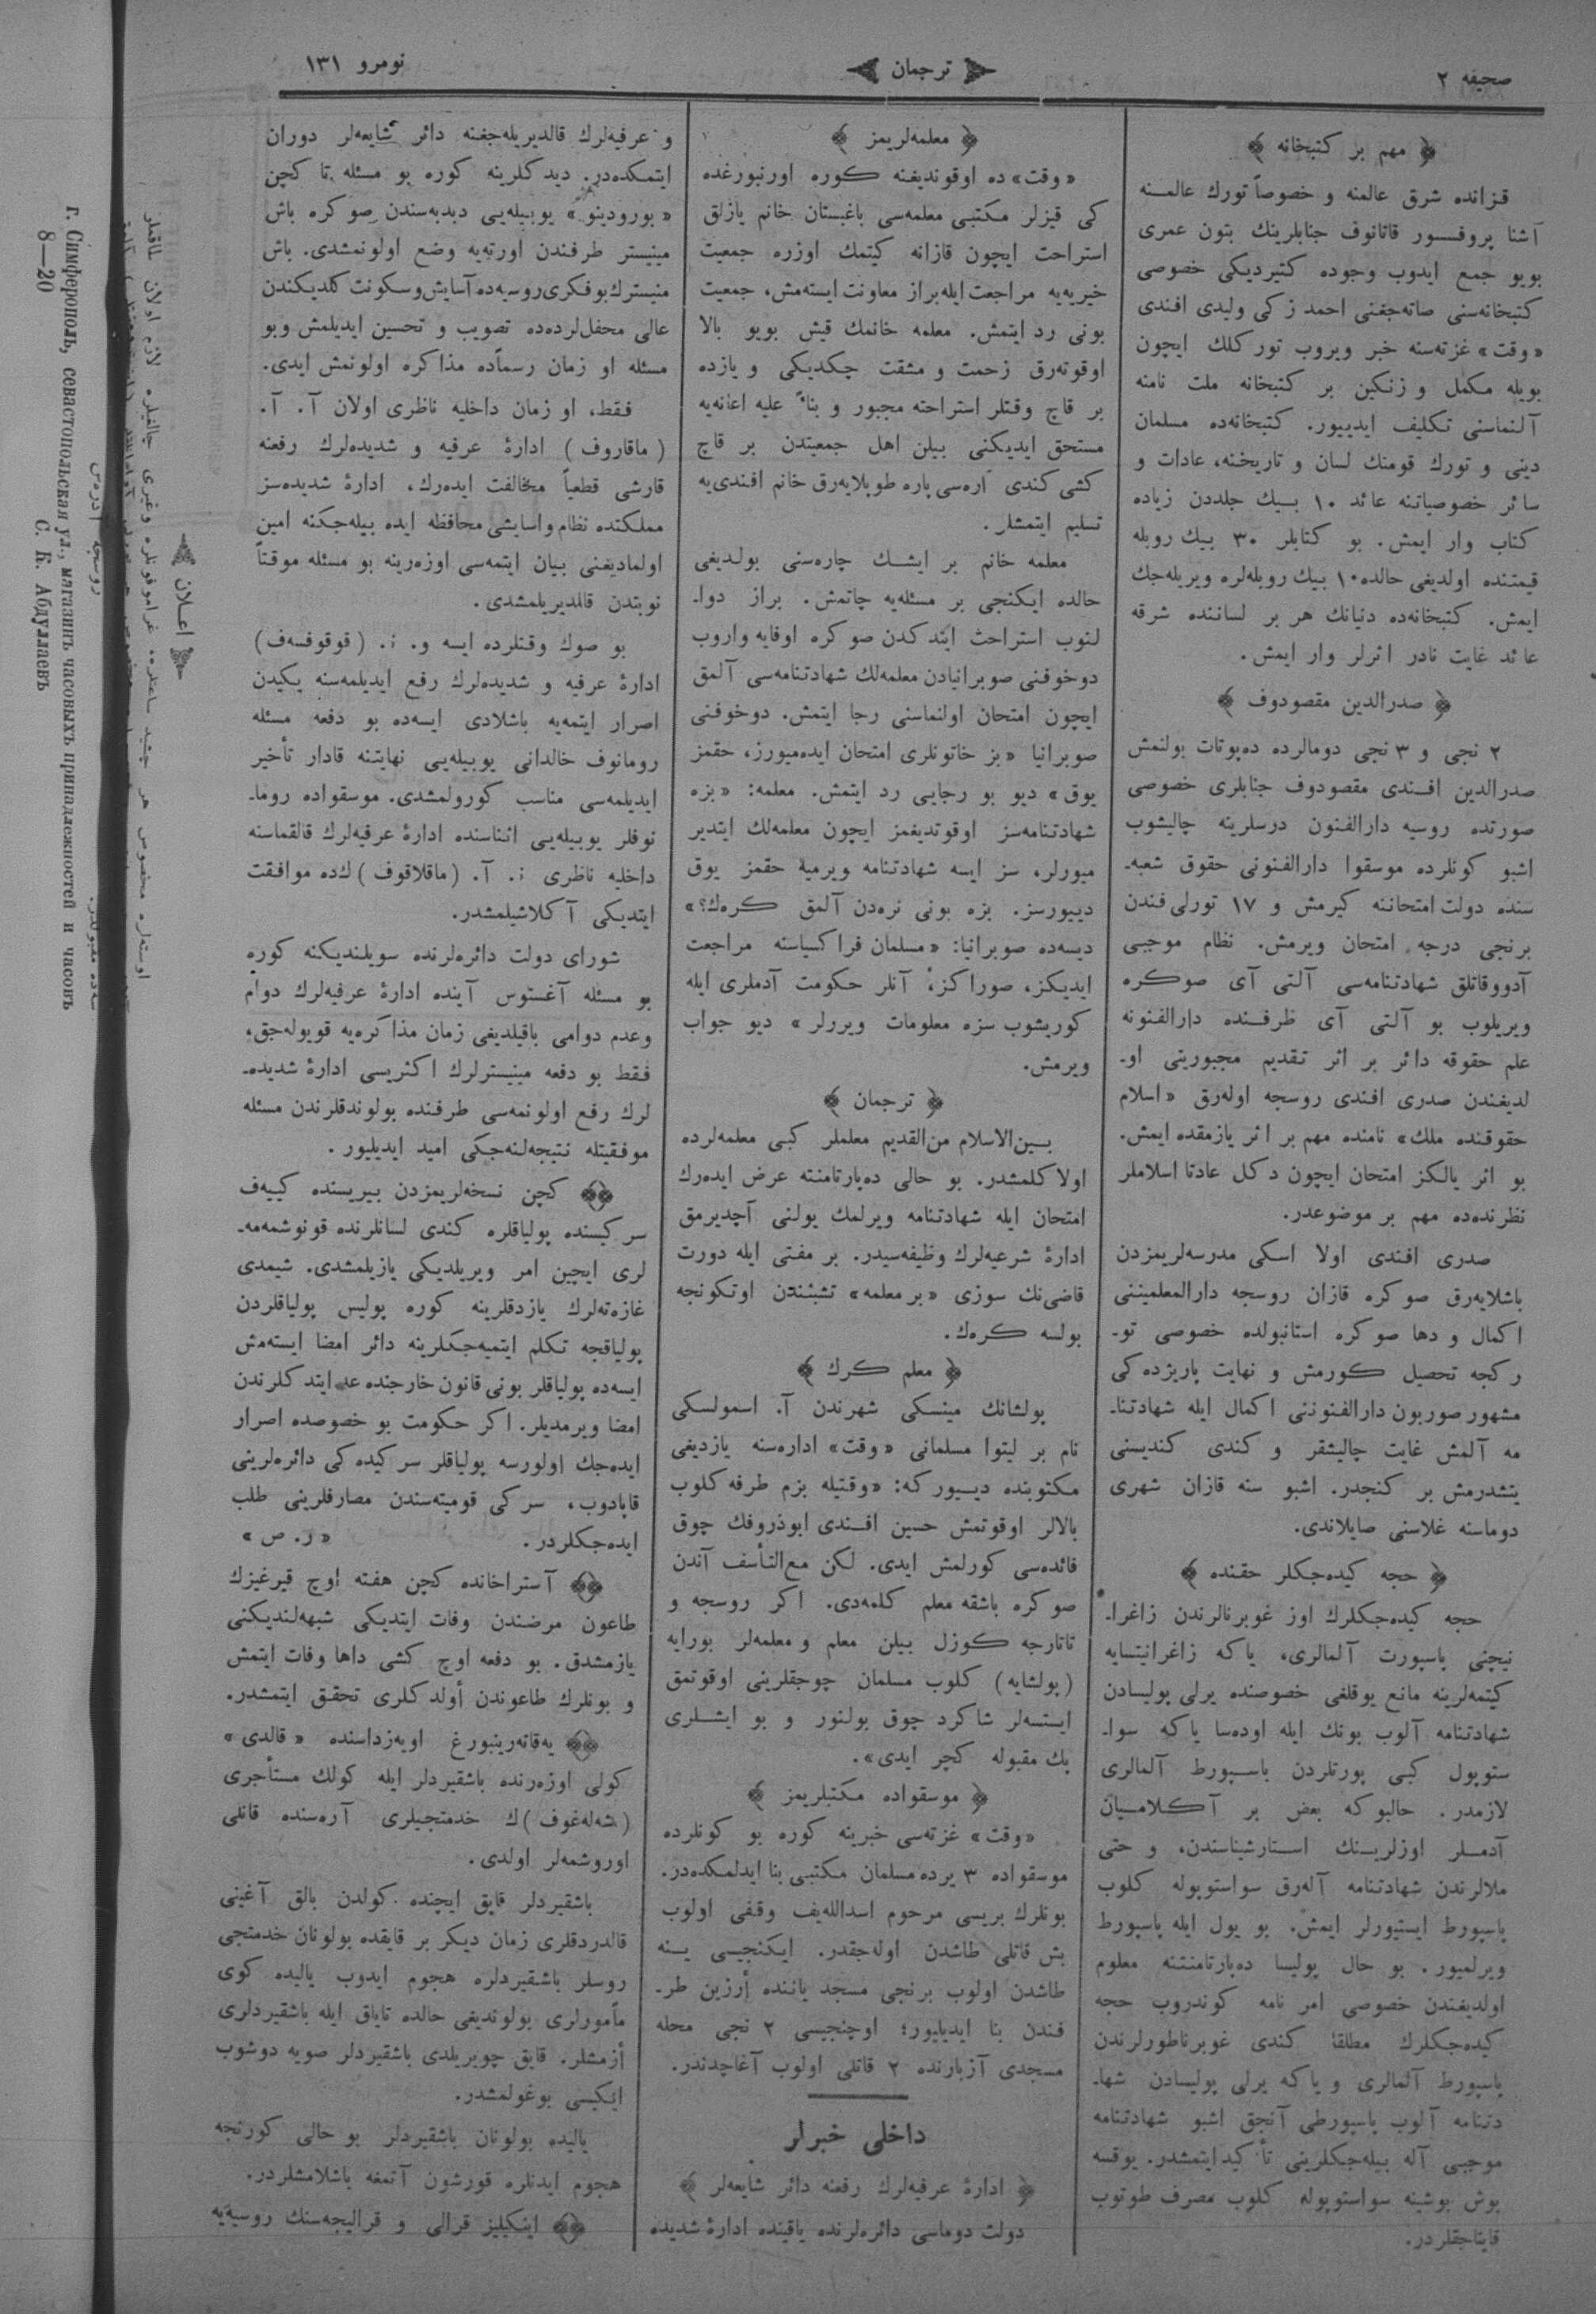 صحیفه ۲
ترجمان
نومرو ۱۳۱
مهم بر كتبخانه
قزانده شرق عالمنه و خصوصاً تورك عالمنه
آشنا پروفسور قاتانوف جنابلرينك بتون عمرى
بويو جمع ايدوب وجوده كتيرديكى خصوصى
كتبخانه‌سنى صاته‌جغنى احمد زكى وليدى افندى
«وقت» غزته‌سنه خبر ويروب توركلك ايچون
بويله مكمل و زنكين بر كتبخانه ملت نامنه
آلنماسنى تكليف ايدييور. كتبخانه‌ده مسلمان
دينى و تورك قومنك لسان و تاريخنه، عادات و
سائر خصوصياتنه عائد ۱۰ بيك جلددن زياده
كتاب وار ايمش. بو كتابلر ۳۰ بيك روبله
قيمتنده اولديغى حالده ۱۰ بيك روبله‌لره ويريله‌جك
ايمش. كتبخانه‌ده دنيانك هر بر لساننده شرقه
عائد غايت نادر اثرلر وار ايمش.
صدرالدين مقصودوف
۲ نجى و ۳ نجى دومالرده ده‌پوتات بولنمش
صدرالدين افندى مقصودوف جنابلرى خصوصى
صورتده روسيه دارالفنون درسلرينه چاليشوب
اشبو كونلرده موسقوا دارالفنونى حقوق شعبه‌ـ
سنده دولت امتحاننه كيرمش و ۱۷ تورلى فندن
برنجى درجه امتحان ويرمش. نظام موجبى
آدووقاتلق شهادتنامه‌سى آلتى آى صوكره
ويريلوب بو آلتى آى ظرفنده دارالفنونه
علم حقوقه دائر بر اثر تقديم مجبوريتى اوـ
لديغندن صدرى افندى روسجه اوله‌رق «اسلام
حقوقنده ملك» نامنده مهم بر اثر يازمقده ايمش.
بو اثر يالكز امتحان ايچون دكل عادتا اسلاملر
نظرنده‌ده مهم بر موضوعدر.
صدرى افندى اولا اسكى مدرسه‌لريمزدن
باشلايه‌رق صوكره قازان روسجه دارالمعلمينى
اكمال و دها صوكره استانبولده خصوصى توـ
ركجه تحصيل كورمش و نهايت پاريژده‌كى
مشهور صوربون دارالفنوننى اكمال ايله شهادتناـ
مه آلمش غايت چاليشقر و كندى كندينى
يتشدرمش بر كنجدر. اشبو سنه قازان شهرى
دوماسنه غلاسنى صايلاندى.
حجه كيده‌جكلر حقنده
حجه كيده‌جكلرك اوز غوبرنالرندن زاغراـ
نيچنى پاسپورت آلمالرى، ياكه زاغرانيتسايه
كيتمه‌لرينه مانع يوقلغى خصوصنده يرلى پوليسادن
شهادتنامه آلوب بونك ايله اوده‌سا ياكه سواـ
ستوپول كبى پورتلردن پاسپورط آلمالرى
لازمدر. حالبوكه بعض بر آكلاميان
آدملر اوزلرينك استارشيناسندن، و حتى
ملالرندن شهادتنامه آله‌رق سواستوپوله كلوب
پاسپورط ايستيورلر ايمش. بو يول ايله پاسپورط
ويرلميور. بو حال پوليسا ده‌پارتامنتنه معلوم
اولديغندن خصوصى امر نامه كوندروب حجه
كيده‌جكلرك مطلقا كندى غوبرناطورلرندن
پاسپورط آلمالرى و ياكه يرلى پوليسادن شهاـ
دتنامه آلوب پاسپورطى آنجق اشبو شهادتنامه
موجبى آله بيله‌جكلرينى تأكيد ايتمشدر. يوقسه
بوش بوشينه سواستوپوله كلوب مصرف طوتوب
قايتاجقلردر.
معلمه‌لريمز
«وقت» ده اوقونديغنه كوره اورنبورغده
كى قيزلر مكتبى معلمه‌سى باغبستان خانم يازلق
استراحت ايچون قازانه كيتمك اوزره جمعيت
خيريه‌يه مراجعت ايله براز معاونت ايسته‌مش، جمعيت
بونى رد ايتمش. معلمه خانمك قيش بويو بالا
اوقوته‌رق زحمت و مشقت چكديكى و يازده
بر قاچ وقتلر استراحته مجبور و بناءً عليه اعانه‌يه
مستحق ايديكنى بيلن اهل جمعيتدن بر قاچ
كشى كندى آره‌سى پاره طوپلايه‌رق خانم افندى‌يه
تسليم ايتمشلر.
معلمه خانم بر ايشك چاره‌سنى بولديغى
حالده ايكنجى بر مسئله‌يه چاتمش. براز دواـ
لنوب استراحت ايتدكدن صوكره اوفايه واروب
دوخوفنى صوبرانيادن معلمه‌لك شهادتنامه‌سى آلمق
ايچون امتحان اولنماسنى رجا ايتمش. دوخوفنى
صوبرانيا «بز خاتونلرى امتحان ايده‌ميورز، حقمز
يوق» ديو بو رجايى رد ايتمش. معلمه: «بزه
شهادتنامه‌سز اوقوتديغمز ايچون معلمه‌لك ايتديرـ
ميورلر، سز ايسه شهادتنامه ويرميه حقمز يوق
دييورسز. بزه بونى نره‌دن آلمق كره‌ك؟»
ديسه‌ده صوبرانيا: «مسلمان فراكسياسنه مراجعت
ايديكز، صوراكز، آنلر حكومت آدملرى ايله
كوريشوب سزه معلومات ويررلر» ديو جواب
ويرمش.
ترجمان
بين‌الاسلام من‌القديم معلملر كبى معلمه‌لرده
اولا كلمشدر. بو حالى ده‌پارتامنته عرض ايده‌رك
امتحان ايله شهادتنامه ويرلمك يولنى آچديرمق
ادارۀ شرعيه‌لرك وظيفه‌سيدر. بر مفتى ايله دورت
قاضى‌نك سوزى «بر معلمه» تشبثندن اوتكونجه
بولسه كره‌ك.
معلم كرك
بولشانك مينسكى شهرندن آ. اسمولسكى
نام بر ليتوا مسلمانى «وقت» اداره‌سنه يازديغى
مكتوبنده دييوركه: «وقتيله بزم طرفه كلوب
بالالر اوقوتمش حسين افندى ابوذروفك چوق
فائده‌سى كورلمش ايدى. لكن مع‌التأسف آندن
صوكره باشقه معلم كلمه‌دى. اكر روسجه و
تاتارجه كوزل بيلن معلم و معلمه‌لر بورايه
(بولشايه) كلوب مسلمان چوجقلرينى اوقوتمق
ايستسه‌لر شاكرد چوق بولنور و بو ايشلرى
پك مقبوله كچر ايدى».
موسقواده مكتبلريمز
«وقت» غزته‌سى خبرينه كوره بو كونلرده
موسقواده ۳ يرده مسلمان مكتبى بنا ايدلمكده‌در.
بونلرك بريسى مرحوم اسدالله‌يف وقفى اولوب
بش قاتلى طاشدن اوله‌جقدر. ايكنجيسى ينه
طاشدن اولوب برنجى مسجد ياننده أرزين طرـ
فندن بنا ايديليور؛ اوچنجيسى ۲ نجى محله
مسجدى آزبارنده ۲ قاتلى اولوب آغاچدندر.
داخلى خبرلر
ادارۀ عرفيه‌لرك رفعنه دائر شايعه‌لر
دولت دوماسى دائره‌لرنده ياقينده ادارۀ شديده
و عرفيه‌لرك قالديريله‌جغنه دائر شايعه‌لر دوران
ايتمكده‌در. ديدكلرينه كوره بو مسئله تا كچن
«بورودينو» يوبيله‌يى دبدبه‌سندن صوكره باش
مينيستر طرفندن اورته‌يه وضع اولونمشدى. باش
منيسترك بو فكرى روسيه‌ده آسايش و سكونت كلديكندن
عالى محفل‌لرده‌ده تصويب و تحسين ايديلمش و بو
مسئله او زمان رسماً‌ده مذاكره اولونمش ايدى.
فقط، او زمان داخليه ناظرى اولان آ. آ.
(ماقاروف) ادارۀ عرفيه و شديده‌لرك رفعنه
قارشى قطعياً مخالفت ايده‌رك، ادارۀ شديده‌سز
مملكتده نظام و اسايشى محافظه ايده بيله‌جكنه امين
اولماديغنى بيان ايتمه‌سى اوزه‌رينه بو مسئله موقتاً
نوبتدن قالديريلمشدى.
بو صوك وقتلرده ايسه و. ن. (قوقوفسه‌ف)
ادارۀ عرفيه و شديده‌لرك رفع ايديلمه‌سنه يكيدن
اصرار ايتمه‌يه باشلادى ايسه‌ده بو دفعه مسئله
رومانوف خالدانى يوبيله‌يى نهايتنه قادار تأخير
ايديلمه‌سى مناسب كورولمشدى. موسقواده روماـ
نوفلر يوبيله‌يى اثناسنده ادارۀ عرفيه‌لرك قالقماسنه
داخليه ناظرى ن. آ. (ماقلاقوف) ك‌ده موافقت
ايتديكى آكلاشيلمشدر.
شوراى دولت دائره‌لرنده سويلنديكنه كوره
بو مسئله آغستوس آينده ادارۀ عرفيه‌لرك دوام
وعدم دوامى باقيلديغى زمان مذاكره‌يه قويوله‌جق،
فقط بو دفعه مينيسترلرك اكثريسى ادارۀ شديده‌ـ
لرك رفع اولونمه‌سى طرفنده بولوندقلرندن مسئله
موفقيتله نتيجه‌لنه‌جكى اميد ايديليور.
كچن نسخه‌لريمزدن بيريسنده كييه‌ف
سركيسنده پولياقلره كندى لسانلرنده قونوشمه‌مه‌ـ
لرى ايچين امر ويريلديكى يازيلمشدى. شيمدى
غازه‌ته‌لرك يازدقلرينه كوره پوليس پولياقلردن
پولياقجه تكلم ايتميه‌جكلرينه دائر امضا ايسته‌مش
ايسه‌ده پولياقلر بونى قانون خارجنده عد ايتدكلرندن
امضا ويرمديلر. اكر حكومت بو خصوصده اصرار
ايده‌جك اولورسه پولياقلر سركيده‌كى دائره‌لرينى
قاپادوب، سركى قوميته‌سندن مصارفلرينى طلب
ايده‌جكلردر. «ر. ص»
آستراخانده كچن هفته اوچ قيرغيزك
طاعون مرضندن وفات ايتديكى شبهه‌لنديكنى
يازمشدق. بو دفعه اوچ كشى داها وفات ايتمش
و بونلرك طاعوندن أولدكلرى تحقق ايتمشدر.
يه‌قاته‌رينبورغ اويه‌زداسنده «قالدى»
كولى اوزه‌رنده باشقيردلر ايله كولك مستأجرى
(شه‌له‌غوف) ك خدمتجيلرى آره‌سنده قانلى
اوروشمه‌لر اولدى.
باشقيردلر قايق ايچنده كولدن بالق آغينى
قالدردقلرى زمان ديكر بر قايقده بولونان خدمتجى
روسلر باشقيردلره هجوم ايدوب ياليده كوى
مأمورلرى بولونديغى حالده تاياق ايله باشقيردلرى
أزمشلر. قايق چويريلدى باشقيردلر صويه دوشوب
ايكيسى بوغولمشدر.
ياليده بولونان باشقيردلر بو حالى كورنجه
هجوم ايدنلره قورشون آتمغه باشلامشلردر.
اينكيليز قرالى و قراليجه‌سنك روسيه‌يه
اعلان
روسجه آدرس
г. Симферополь, севастопольская ул., магазинъ часовыхъ принадлежностей и часовъ
С. Б. Абдуллаевъ
8—20